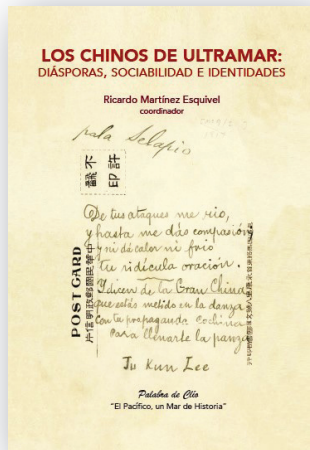 LOS CHINOS DE ULTRAMAR:
DIÁSPORAS, SOCIABILIDAD E IDENTIDADES
Ricardo Martínez Esquivel
coordinador
para Selapio
不許
翻印
De tus ataques me rio,
y hasta me dás compasión
y ni dá calor ni frio
tu ridícula oración.
Y dicen de la Gran China
que estás metido en la danza
con tu propaganda cochina
para llenarte la panza
Ju Kun Lee
POST CARD
中華民國郵政明信片
Palabra de Clío
"El Pacífico, un Mar de Historia"